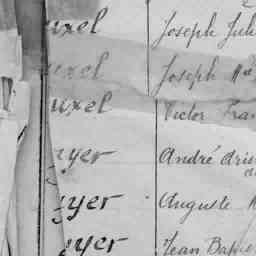 uxel Joseph Juli
uxel Joseph
uxel Victor Fran
yer André
yer Auguste
yer Jean Bap